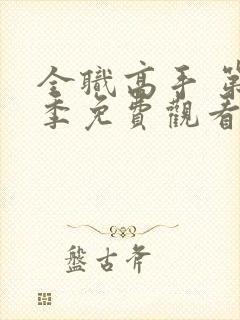 全職高手 第
季免費觀看
盤古斧